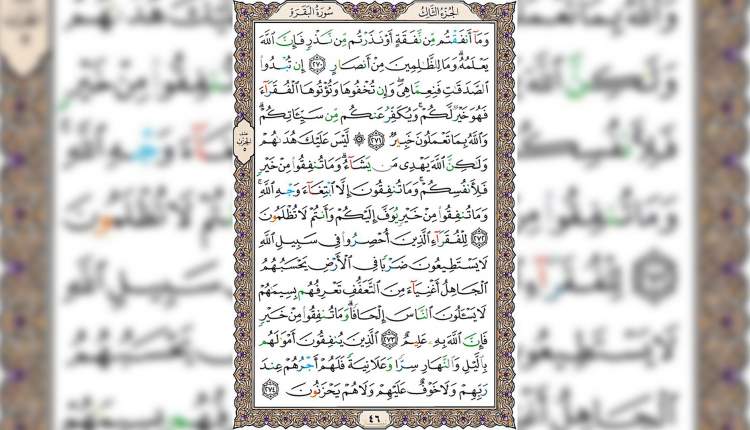 الجزء الثالث
سورة البقرة
وَمَآ أَنفَقْتُم مِّن نَّفَقَةٍ أَوْ نَذَرْتُم مِّن نَّذْرٍ فَإِنَّ ٱللَّهَ
يَعْلَمُهُۥ وَمَا لِلظَّٰلِمِينَ مِنْ أَنصَارٍ ٢٧٠ إِن تُبْدُوا۟
ٱلصَّدَقَٰتِ فَنِعِمَّا هِىَ وَإِن تُخْفُوهَا وَتُؤْتُوهَا ٱلْفُقَرَآءَ
فَهُوَ خَيْرٌ لَّكُمْ وَيُكَفِّرُ عَنكُم مِّن سَيِّـَٔاتِكُمْ
وَٱللَّهُ بِمَا تَعْمَلُونَ خَبِيرٌ ٢٧١ ۞ لَّيْسَ عَلَيْكَ هُدَىٰهُمْ
وَلَٰكِنَّ ٱللَّهَ يَهْدِى مَن يَشَآءُ وَمَا تُنفِقُوا۟ مِنْ خَيْرٍ
فَلِأَنفُسِكُمْ وَمَا تُنفِقُونَ إِلَّا ٱبْتِغَآءَ وَجْهِ ٱللَّهِ
وَمَا تُنفِقُوا۟ مِنْ خَيْرٍ يُوَفَّ إِلَيْكُمْ وَأَنتُمْ لَا تُظْلَمُونَ
٢٧٢ لِلْفُقَرَآءِ ٱلَّذِينَ أُحْصِرُوا۟ فِى سَبِيلِ ٱللَّهِ
لَا يَسْتَطِيعُونَ ضَرْبًا فِى ٱلْأَرْضِ يَحْسَبُهُمُ
ٱلْجَاهِلُ أَغْنِيَآءَ مِنَ ٱلتَّعَفُّفِ تَعْرِفُهُم بِسِيمَٰهُمْ
لَا يَسْـَٔلُونَ ٱلنَّاسَ إِلْحَافًا وَمَا تُنفِقُوا۟ مِنْ خَيْرٍ
فَإِنَّ ٱللَّهَ بِهِۦ عَلِيمٌ ٢٧٣ ٱلَّذِينَ يُنفِقُونَ أَمْوَٰلَهُم
بِٱلَّيْلِ وَٱلنَّهَارِ سِرًّا وَعَلَانِيَةً فَلَهُمْ أَجْرُهُمْ عِندَ
رَبِّهِمْ وَلَا خَوْفٌ عَلَيْهِمْ وَلَا هُمْ يَحْزَنُونَ ٢٧٤
٤٦